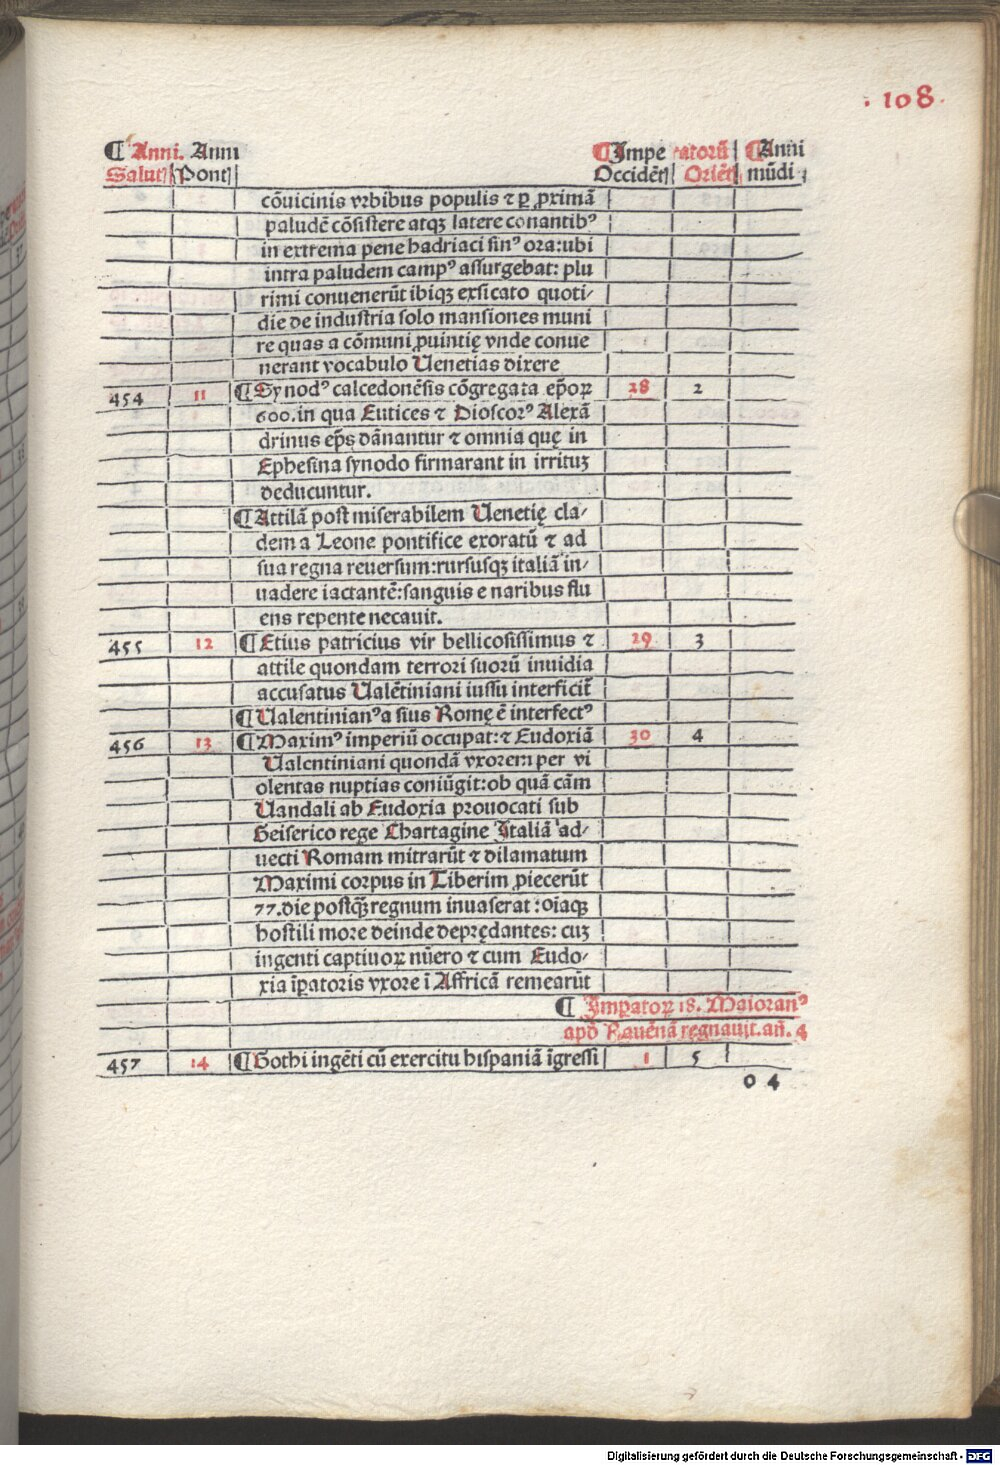 · 108 ·
¶ Anni. Anni ¶ Impe ratorū ¶ Anni
Salutꝭ Pontꝭ Occidētꝭ Oriētꝭ mūdi
cōuicinis vrbibus populis ⁊ ꝑ ꝓximā
paludē cōsistere atqꝫ latere conantibꝰ
in extrema pene hadriaci sinꝰ ora: ubi
intra paludem campꝰ assurgebat: plu
rimi conuenerūt ibiqꝫ exsicato quoti-
die de industria solo mansiones muni
re quas a cōmuni ꝓuintię vnde conue
nerant vocabulo Uenetias dixere
454 11 ¶ Synodꝰ calcedonēsis cōgregata ep̄oꝝ 28 2
600. in qua Eutices ⁊ Dioscorꝰ Alexā
drinus ep̄s dānantur ⁊ omnia quę in
Ephesina synodo firmarant in irrituꝫ
deducuntur.
¶ Attilā post miserabilem Uenetię cla-
dem a Leone pontifice exoratū ⁊ ad
sua regna reuersum: rursusqꝫ italiā in-
uadere iactantē: sanguis e naribus flu
ens repente necauit.
455 12 ¶ Etius patricius vir bellicosissimus ⁊ 29 3
attile quondam terrori suorū inuidia
accusatus Ualētiniani iussu interficit̄
¶ Ualentinianꝰ a sius Romę ē interfectꝰ
456 13 ¶ Maximꝰ imperiū occupat: ⁊ Eudoxiā 30 4
Ualentiniani quondā vxorem per vi
olentas nuptias coniūgit: ob quā cām
Uandali ab Eudoxia prouocati sub
Geiserico rege Chartagine Italiā ad-
uecti Romam mitrarūt ⁊ dilamatum
Maximi corpus in Tiberim ꝓiecerūt
77. die postqꝫ regnum inuaserat: oīaqꝫ
hostili more deinde deprędantes: cuꝫ
ingenti captiuoꝝ nūero ⁊ cum Eudo-
xia īꝑatoris vxore ī Affricā remearūt
¶ Imꝑatoꝝ 18. Maioranꝰ
apd̄ Rauēnā regnauit. an̄. 4
457 14 ¶ Gothi ingēti cū exercitu hispaniā īgressi 1 5
o 4
Digitalisierung gefördert durch die Deutsche Forschungsgemeinschaft - DFG